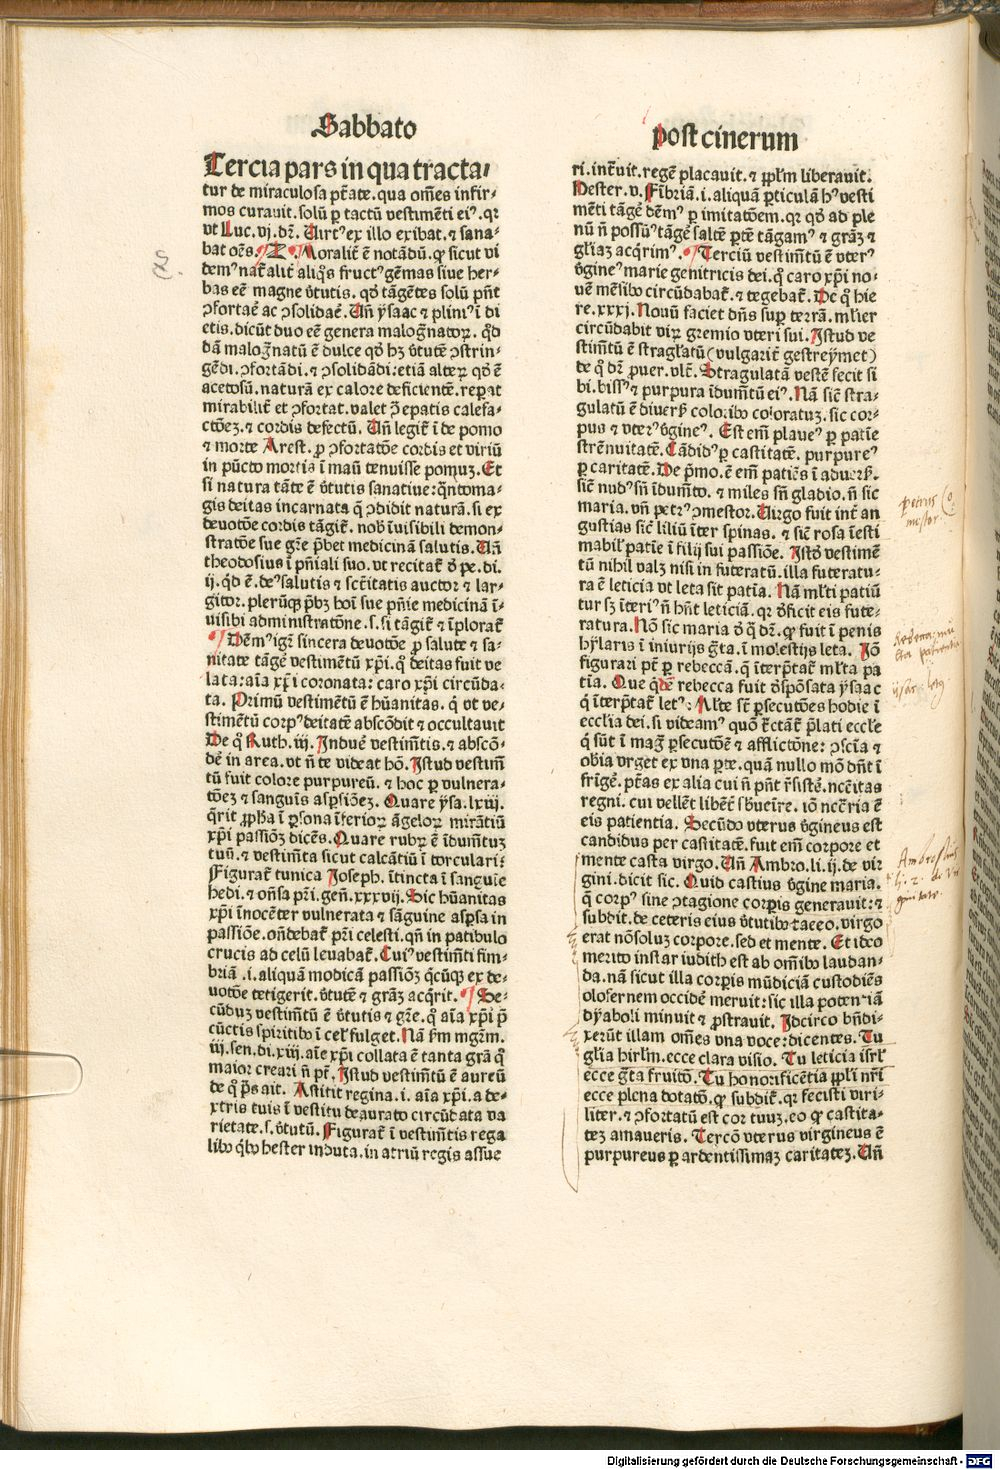 Sabbato
Tercia pars in qua tracta-
tur de miraculosa ptāte. qua om̄es infir-
mos curauit. solū ꝑ tactū vestimēti eiꝰ. qꝛ
vt Luc. vj. dꝛ. Uirtꝰ ex illo exibat. ⁊ sana-
bat oēs. Moralit̄ ē notādū. ꝙ sicut vi
demꝰ nat̄alit̄ aliq̄s fructꝰ gēmas siue her-
bas eē magne v̄tutis. qď tāgētes solū pn̄t
ꝯfortaē ac ꝯsolidaē. Uñ ysaac ⁊ pliniꝰ ī di
etis. dicūt duo eē genera malogᷓnatoꝝ. qᷓd
dā malogᷓnatū ē dulce qď hꝫ v̄tutē ꝯstrin-
gēdi. ꝯfortādi. ⁊ ꝯsolidādi: etiā alteꝝ qď ē
acetosū. naturā ex calore deficientē. reꝑat
mirabilit̄ et ꝯfortat. valet ꝓ̄ epatis calefa-
ctōeꝫ. ⁊ cordis defectū. Uñ legit̄ ī de pomo
⁊ morte Arest. ꝑ ꝯfortatōe cordis et viriū
in pūcto mortis ī maū tenuisse pomuꝫ. Et
si natura tāte ē v̄tutis sanatiue: qn̄toma-
gis deitas incarnata q̄ ꝯdidit naturā. si ex
deuotōe cordis tāgit̄. nob̄ īuisibili demon-
stratōe sue gr̄e p̄bet medicinā salutis. Uñ
theodosius ī pn̄iali suo. vt recitat̄ ď pe. di.
ij. qd̄ ē. deꝰ salutis ⁊ sctītatis auctor ⁊ lar-
gitor. pleruꝙ p̄bꝫ hoī sue pn̄ie medicinā ī-
uisibi administratōne. s. si tāgit̄ ⁊ īplorat̄
Dēmꝰ igꝛ̄ sincera deuotōe ꝓ salute ⁊ sa-
nitate tāgē vestimētū xp̄i. q̄ deitas fuit ve
lata: aīa xp̄i coronata: caro xp̄i circūda-
ta. Primū vestimētū ē hūanitas. q̄ vt ve-
stimētū corpꝰ deitatē abscōdit ⁊ occultauit
De qͦ Ruth. iij. Induē vestimtis. ⁊ abscō-
dē in area. vt n̄ te videat hō. Istud vestim̄
tū fuit colore purpureū. ⁊ hoc ꝑ vulnera-
tōeꝫ ⁊ sanguīs asꝑsiōeꝫ. Quare ysa. lxiij.
q̄rit ꝓph̄a ī ꝑsona īferioꝝ āgeloꝝ mirātiū
xp̄i passiōꝫ dicēs. Quare rubꝝ ē īdumtuꝫ
tuū. ⁊ vestimta sicut calcātiū ī torculari:
Figurat̄ tunica Joseph. ītincta ī sanguīe
hedi. ⁊ on̄sa pr̄i. gen̄. xxxvij. Sic hūanitas
xp̄i īnocēter vulnerata ⁊ sāguine asꝑsa in
passiōe. on̄debat̄ pr̄i celesti. qn̄ in patibulo
crucis ad celū leuabat̄. Cuiꝰ vestimti fim-
briā. i. aliquam modicā passiōꝫ qͣcūqꝫ ex de-
uotōe tetigerit. v̄tutē ⁊ grāꝫ acq̄rit. Se-
cūduꝫ vestimtū ē v̄tutis ⁊ gr̄e. qͦ aīa xp̄i p̄
cūctis spiritibꝰ ī cel̄ fulget. Nā s̄m mgr̄m.
iij. sen. di. xiij. aīe xp̄i collata ē tanta grā qͦ
maior creari n̄ pt̄. Istud vestimtū ē aureū
de qͦ p̄s ait. Astitit regina. i. aīa xp̄i. a de-
xtris tuis ī vestitu deaurato circūdata va
rietate. s. v̄tutū. Figurat̄ ī vestimtis rega
libꝰ qͥbꝰ hester induta. in atriū regis assue
post cinerum
ri. int̄uit. regē placauit. ⁊ ꝓplm̄ liberauit.
Hester. v. Fībriā. i. aliquā ꝑticulā hꝰ vesti
mēti tāgē dēmꝰ ꝑ imitatōem. qꝛ qď ad ple
nū n̄ possūꝰ tāgē saltē ꝑtē tāgamꝰ ⁊ grāꝫ ⁊
gl̄iaꝫ acq̄rimꝰ. Terciū vestimtū ē vterꝰ
v̄gineꝰ marie genitricis dei. q̄ caro xp̄i no-
uē mēsibꝰ circūdabat̄. ⁊ tegebat̄. De qͦ hie
re. xxxj. Nouū faciet dn̄s suꝑ terrā. ml̄ier
circūdabit viꝝ gremio vteri sui. Istud ve
stimtū ē straglatū (vulgarit̄ gestreymet)
de qͦ dꝛ ꝓuer. vlt̄. Stragulatā vestē fecit si
bi. bissꝰ ⁊ purpura īdumtū eiꝰ. Nā sic̄ stra-
gulatū ē diuers̄ coloribꝰ coloratuꝫ. sic cor-
pus ⁊ vterꝰ v̄gineꝰ. Est em̄ flaueꝰ ꝑ patīe
strēnuitatē. Cādidꝰ ꝑ castitatē. purpureꝰ
ꝑ caritatē. De pͥmo. ē em̄ patiēs ī aduers̄.
sic̄ nudꝰ sn̄ īdumto. ⁊ miles sn̄ gladio. n̄ sic
maria. vn̄ petrꝰ ꝯmestor. Uirgo fuit int̄ an
gustias sic̄ liliū īter spinas. ⁊ sic̄ rosa īesti
mabil̄ patīe ī filij sui passiōe. Istď vestimē
tū nihil valꝫ nisi in futeratū. illa futeratu-
ra ē leticia vt leta sit patīa. Nā ml̄ti patiū
tur sꝫ īteriꝰ n̄ hn̄t leticiā. qꝛ ďficit eis fute-
ratura. Nō sic maria ď q̄ dꝛ. ꝙ fuit ī penis
hylaris ī iniurijs gᷓta. ī molestijs leta. Iō
figurari pt̄ ꝑ rebeccā. q̄ īterp̄tat̄ ml̄ta pa
tīa. Que qͥdē rebecca fuit ďspōsata ysaac
q̄ īterp̄tat̄ letꝰ. Ml̄te st̄ ꝑsecutōes hodie ī
ecclia dei. si videamꝰ quō t̄ctāt̄ p̄lati eccl̄e
q̄ sūt ī magᷓ ꝑsecutōe ⁊ afflictōne: ꝯscīa ⁊
obīa vrget ex vna ꝑte. qua nullo mō dn̄t ī
frīgē. ptātes ex alia cui n̄ pn̄t rn̄sistē. nc̄citas
regni. cui vellēt libēt̄ sb̄ueīre. iō nc̄cria ē
eis patientia. Secūdo vterus v̄gineus est
candidus per castitatē. fuit em̄ corpore et
mente casta virgo. Uñ Ambro. li. ij. de vir
gini. dicit sic. Quid castius v̄gine maria.
q̄ corpꝰ sine ꝯtagione corꝑis generauit: ⁊
subdit. de ceteris eius v̄tutibꝰ taceo. virgo
erat nōsoluꝫ corpore. sed et mente. Et ideo
merito instar iudith est ab om̄ibꝰ laudan-
da. nā sicut illa corꝑis mūdiciā custodiēs
olofernem occidē meruit: sic illa potentiā
dyaboli minuit ⁊ ꝓstrauit. Idcirco bn̄di-
xerūt illam om̄es vna voce: dicentes. Tu
gl̄ia hirl̄m. ecce clara visio. Tu leticia isrl̄
ecce gᷓta fruitō. Tu honorificētia ꝓpl̄i nr̄i
ecce plena dotatō. ꝙ subdit̄. qꝛ fecisti viri-
liter. ⁊ ꝯfortatū est cor tuuꝫ. eo ꝙ castita-
teꝫ amaueris. Tercō vterus virgineus ē
purpureus ꝑ ardentissimaꝫ caritateꝫ. Uñ
petrus Co
mestor.
Ambrosius
li. 2. de Vir
ginitate.
Digitalisierung gefördert durch die Deutsche Forschungsgemeinschaft - DFG